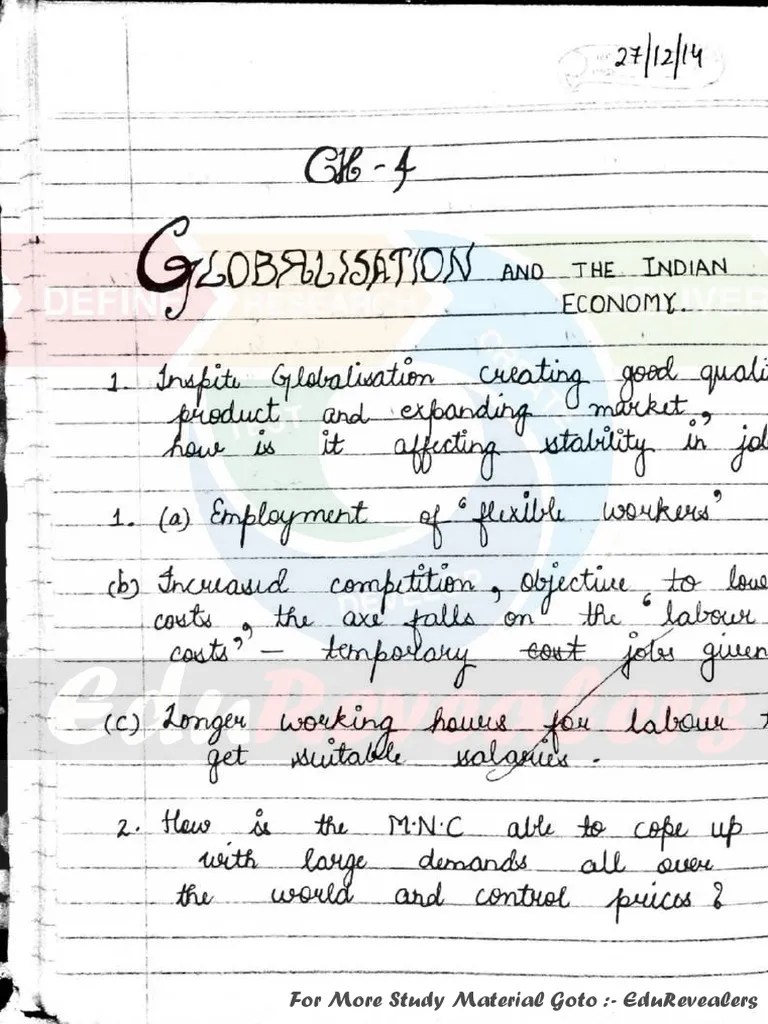 27/12/14
CH - 4
GLOBALISATION AND THE INDIAN
ECONOMY.
1. Inspite Globalisation creating good quali
product and expanding market,
how is it affecting stability in jo
1. (a) Employment of "flexible workers"
(b) Increased competition, objective to lowe
costs, the axe falls on the "labour
costs" – temporary cost jobs given
(c) Longer working hours for labour t
get suitable salaries.
2. How is the M.N.C able to cope up
with large demands all over
the world and control prices?
DEFINE RESEARCH
CREATE
TEST
DEVELOP
EduRevealers
For More Study Material Goto :- EduRevealers